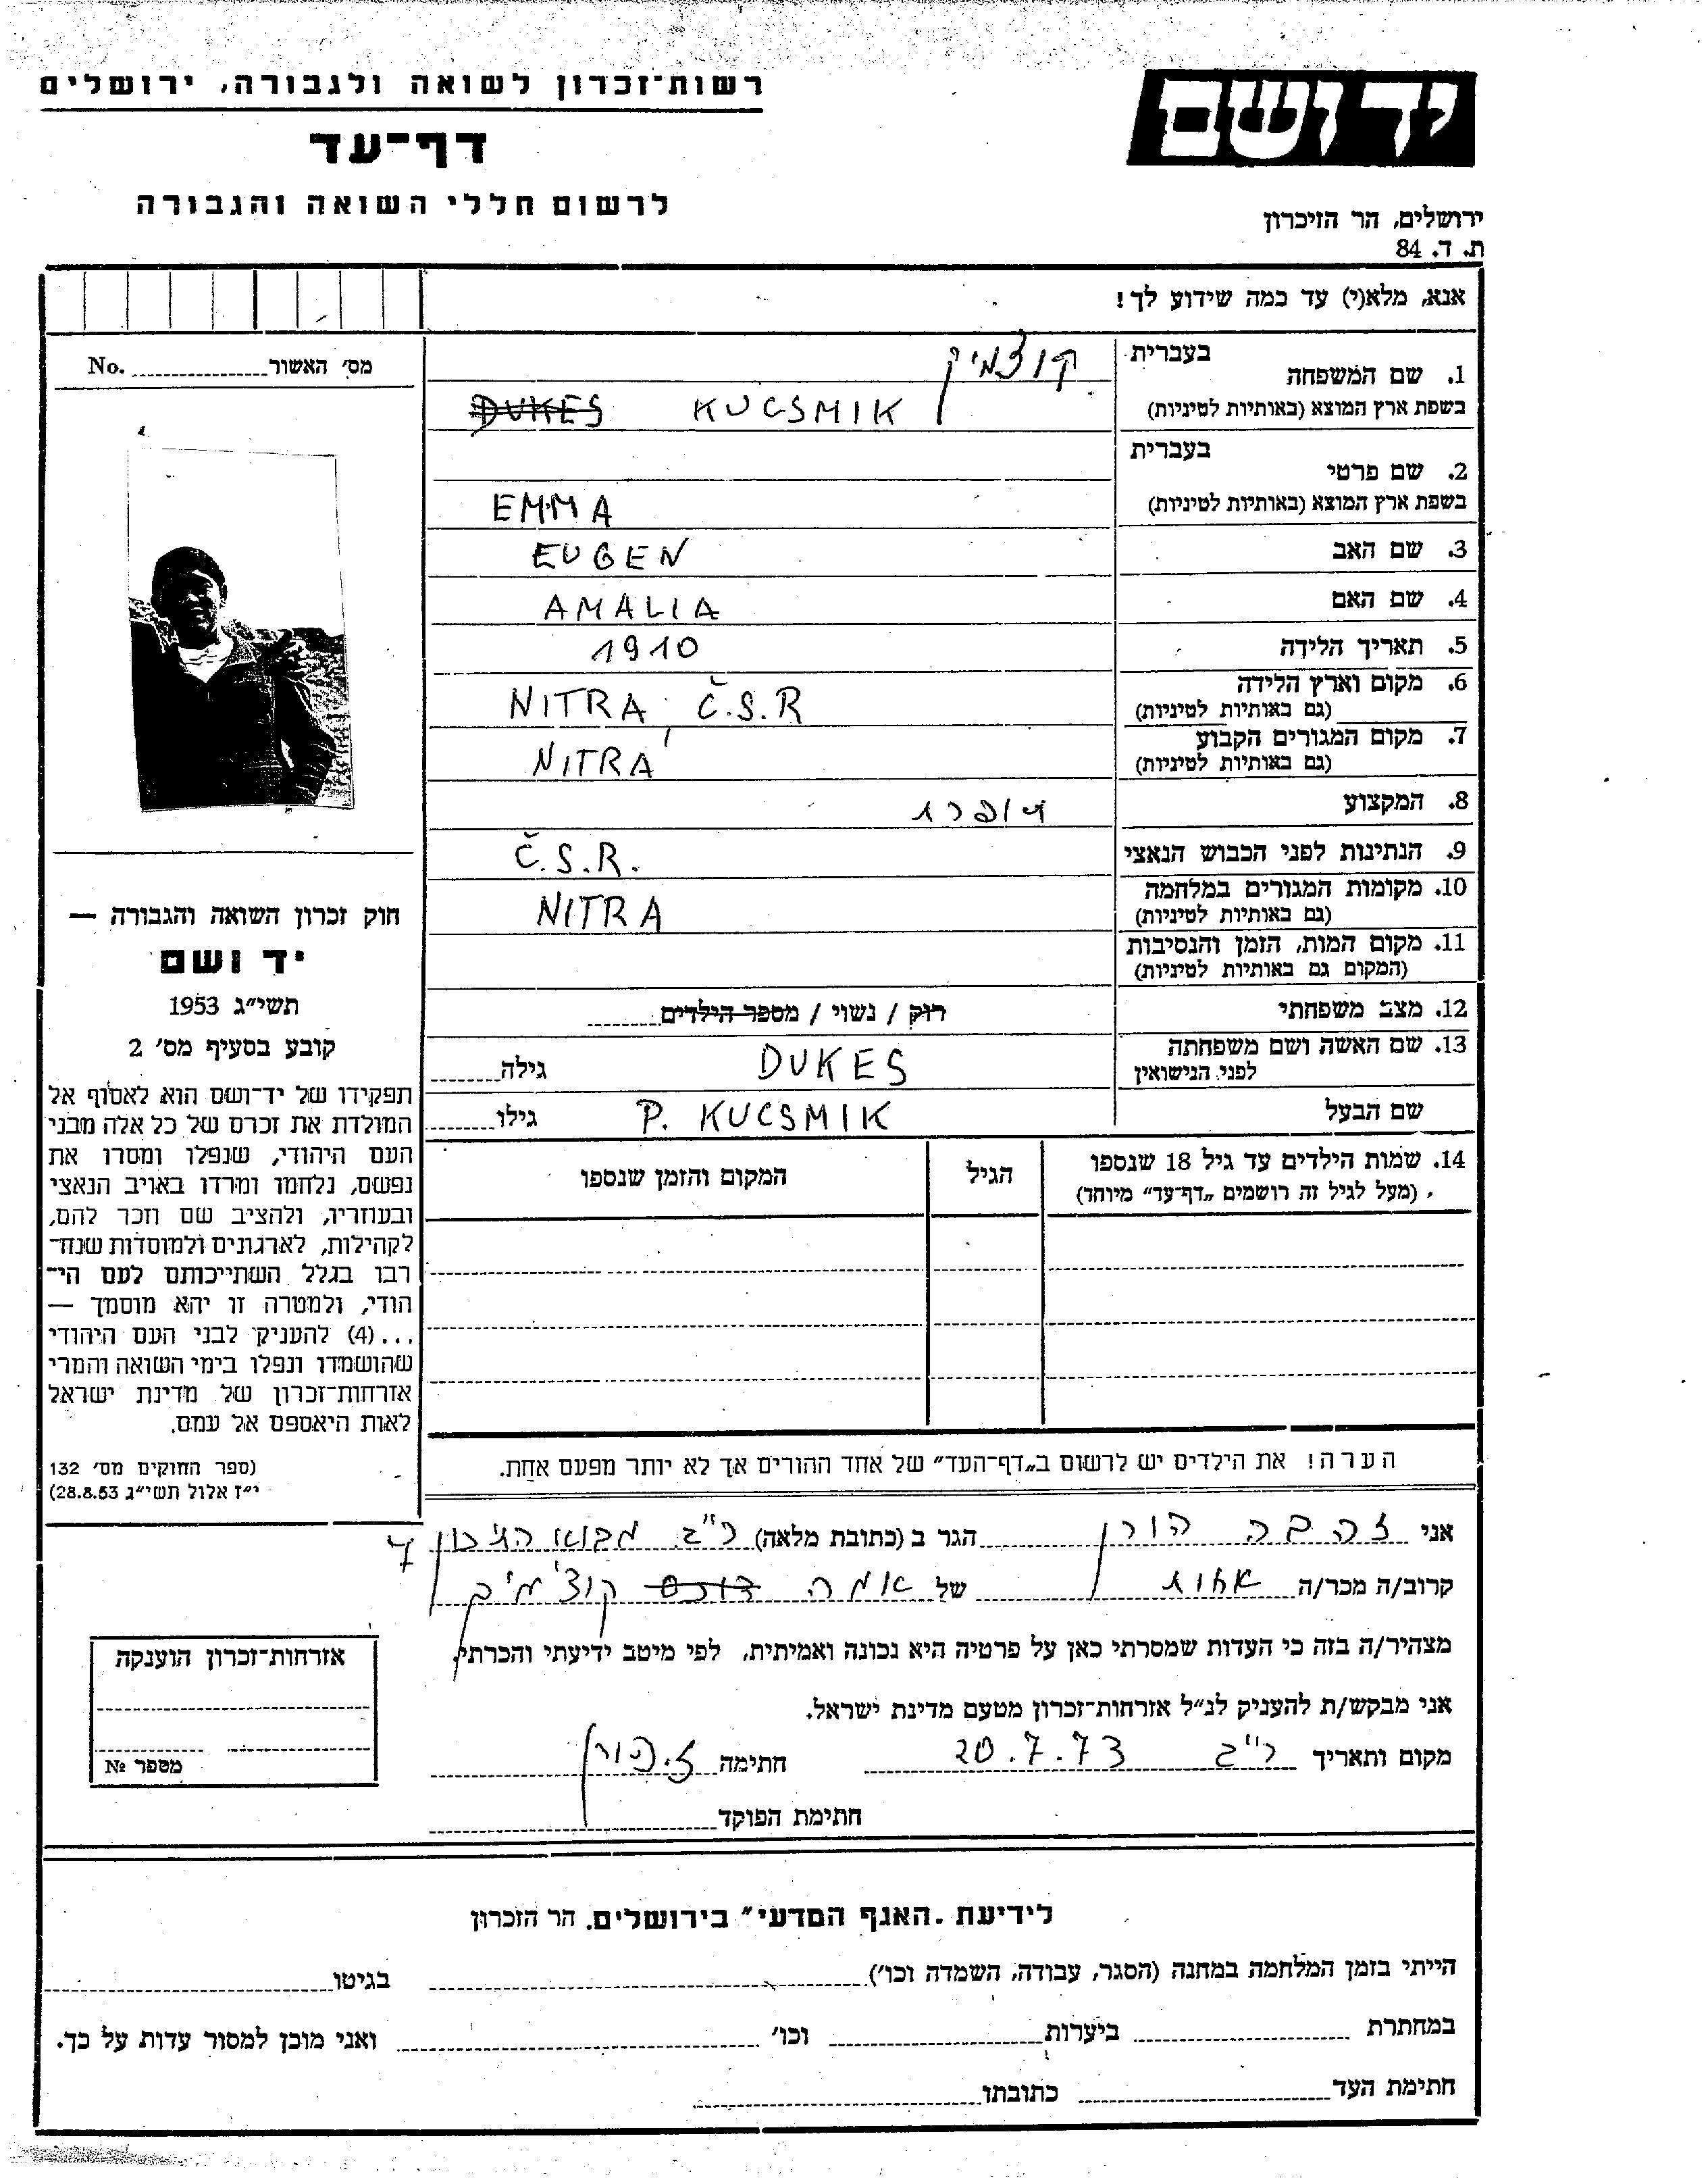 רשות־זכרון לשואה ולגבורה, ירושלים
דף־עד
לרשום חללי השואה והגבורה
יד ושם
ירושלים, הר הזיכרון
ת. ד. 84
אנא, מלא(י) עד כמה שידוע לך!
מס׳ האשור No.
1. שם המשפחה בעברית קוצמיק
בשפת ארץ המוצא (באותיות לטיניות) DUKES KUCSMIK
2. שם פרטי בעברית
בשפת ארץ המוצא (באותיות לטיניות) EMMA
3. שם האב EUGEN
4. שם האם AMALIA
5. תאריך הלידה 1910
6. מקום וארץ הלידה NITRA Č.S.R
(גם באותיות לטיניות)
7. מקום המגורים הקבוע NITRA
(גם באותיות לטיניות)
8. המקצוע תופרת
9. הנתינות לפני הכבוש הנאצי Č.S.R.
10. מקומות המגורים במלחמה NITRA
(גם באותיות לטיניות)
11. מקום המות, הזמן והנסיבות
(המקום גם באותיות לטיניות)
12. מצב משפחתי רוק / נשוי / מספר הילדים
13. שם האשה ושם משפחתה DUKES גילה
לפני הנישואין
שם הבעל P. KUCSMIK גילו
14. שמות הילדים עד גיל 18 שנספו הגיל המקום והזמן שנספו
(מעל לגיל זה רושמים „דף־עד” מיוחד)
הערה! את הילדים יש לרשום ב„דף־העד” של אחד ההורים אך לא יותר מפעם אחת.
חוק זכרון השואה והגבורה —
יד ושם
תשי״ג 1953
קובע בסעיף מס׳ 2
תפקידו של יד־ושם הוא לאסוף אל
המולדת את זכרם של כל אלה מבני
העם היהודי, שנפלו ומסרו את
נפשם, נלחמו ומרדו באויב הנאצי
ובעוזריו, ולהציב שם וזכר להם,
לקהילות, לארגונים ולמוסדות שנח־
רבו בגלל השתייכותם לעם הי־
הודי, ולמטרה זו יהא מוסמך —
...(4) להעניק לבני העם היהודי
שהושמדו ונפלו בימי השואה והמרי
אזרחות־זכרון של מדינת ישראל
לאות היאספם אל עמם.
(ספר החוקים מס׳ 132
י״ז אלול תשי״ג 28.8.53)
אני זהבה הורן הגר ב (כתובת מלאה) ר״ג מבוא התיכון 7
קרוב/ה מכר/ה אחות של אמה דוכס קוצ׳מיק
מצהיר/ה בזה כי העדות שמסרתי כאן על פרטיה היא נכונה ואמיתית, לפי מיטב ידיעתי והכרתי.
אני מבקש/ת להעניק לנ״ל אזרחות־זכרון מטעם מדינת ישראל.
מקום ותאריך ר״ג 20.7.73 חתימה ז. הורן
חתימת הפוקד
אזרחות־זכרון הוענקה
מספר №
לידיעת „האגף המדעי” בירושלים. הר הזכרון
הייתי בזמן המלחמה במחנה (הסגר, עבודה, השמדה וכו׳) בגיטו
במחתרת ביערות וכו׳ ואני מוכן למסור עדות על כך.
חתימת העד כתובתו